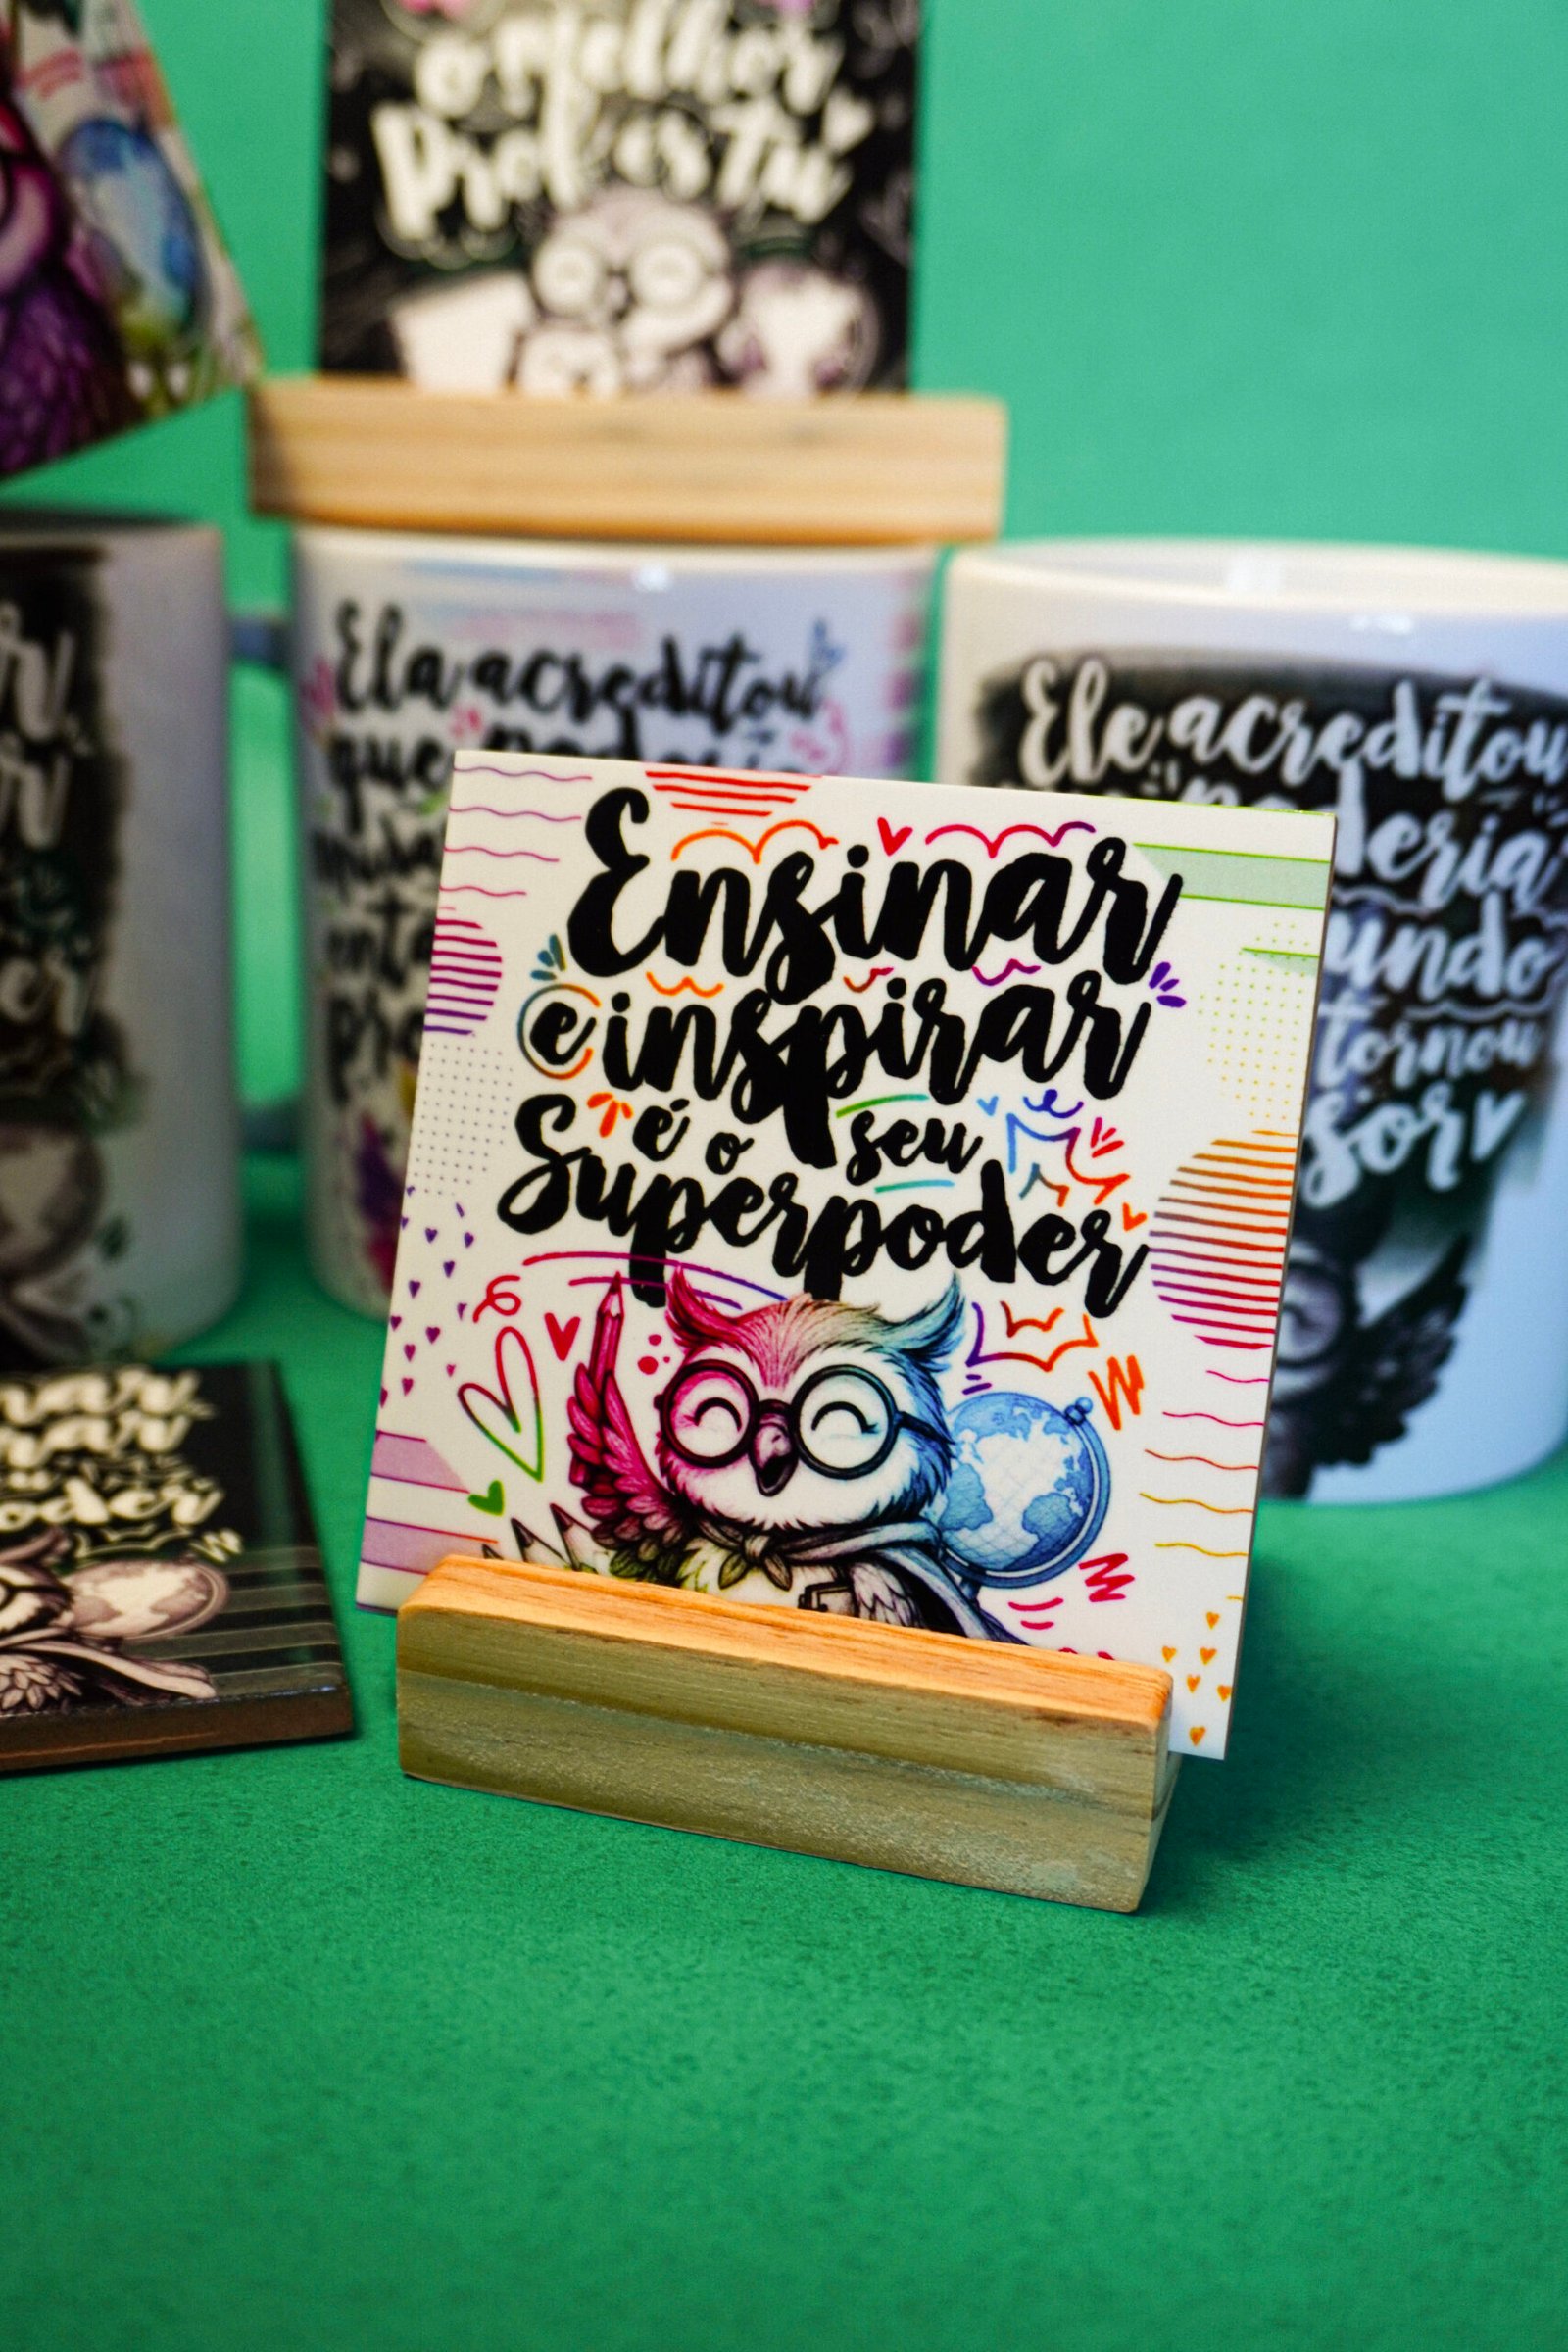 o melhor
Prof. és tu
Ela acreditou
que
Ele acreditou
poderia
undo
tornou
sor
Ensinar
e inspirar
é o seu
Superpoder
nar
rar
oder